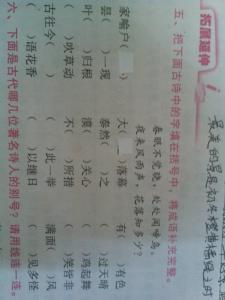 拓展延伸
五、把下面古诗中的字填在括号中，将成语补充完整。
春眠不觉晓，处处闻啼鸟。
夜来风雨声，花落知多少？
家喻户( ) 大( )落幕 有( )有色
昙( )一现 泰然( )之 ( )过天晴
叶( )归根 漠( )关心 ( )鸡起舞
( )吹草动 不( )所措 ( )笑皆非
古往今( ) ( )此一举 满面( )风
( )语花香 ( )以继日 ( )见多怪
六、下面是古代哪几位著名诗人的别号？请用线连一连。